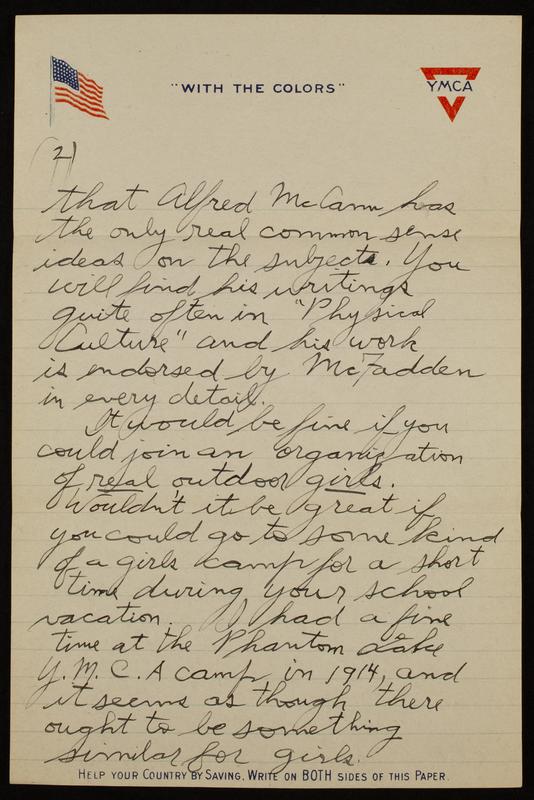 "WITH THE COLORS"
YMCA
2)
that Alfred McCann has
the only real common sense
ideas on the subjects. You
will find his writings
quite often in "Physical
Culture" and his work
is endorsed by McFadden
in every detail.
It would be fine if you
could join an organization
of real outdoor girls.
Wouldn't it be great if
you could go to some kind
of a girls camp for a short
time during your school
vacation. I had a fine
time at the Phantom Lake
Y.M.C.A camp in 1914, and
it seems as though there
ought to be something
similar for girls.
HELP YOUR COUNTRY BY SAVING. WRITE ON BOTH SIDES OF THIS PAPER.